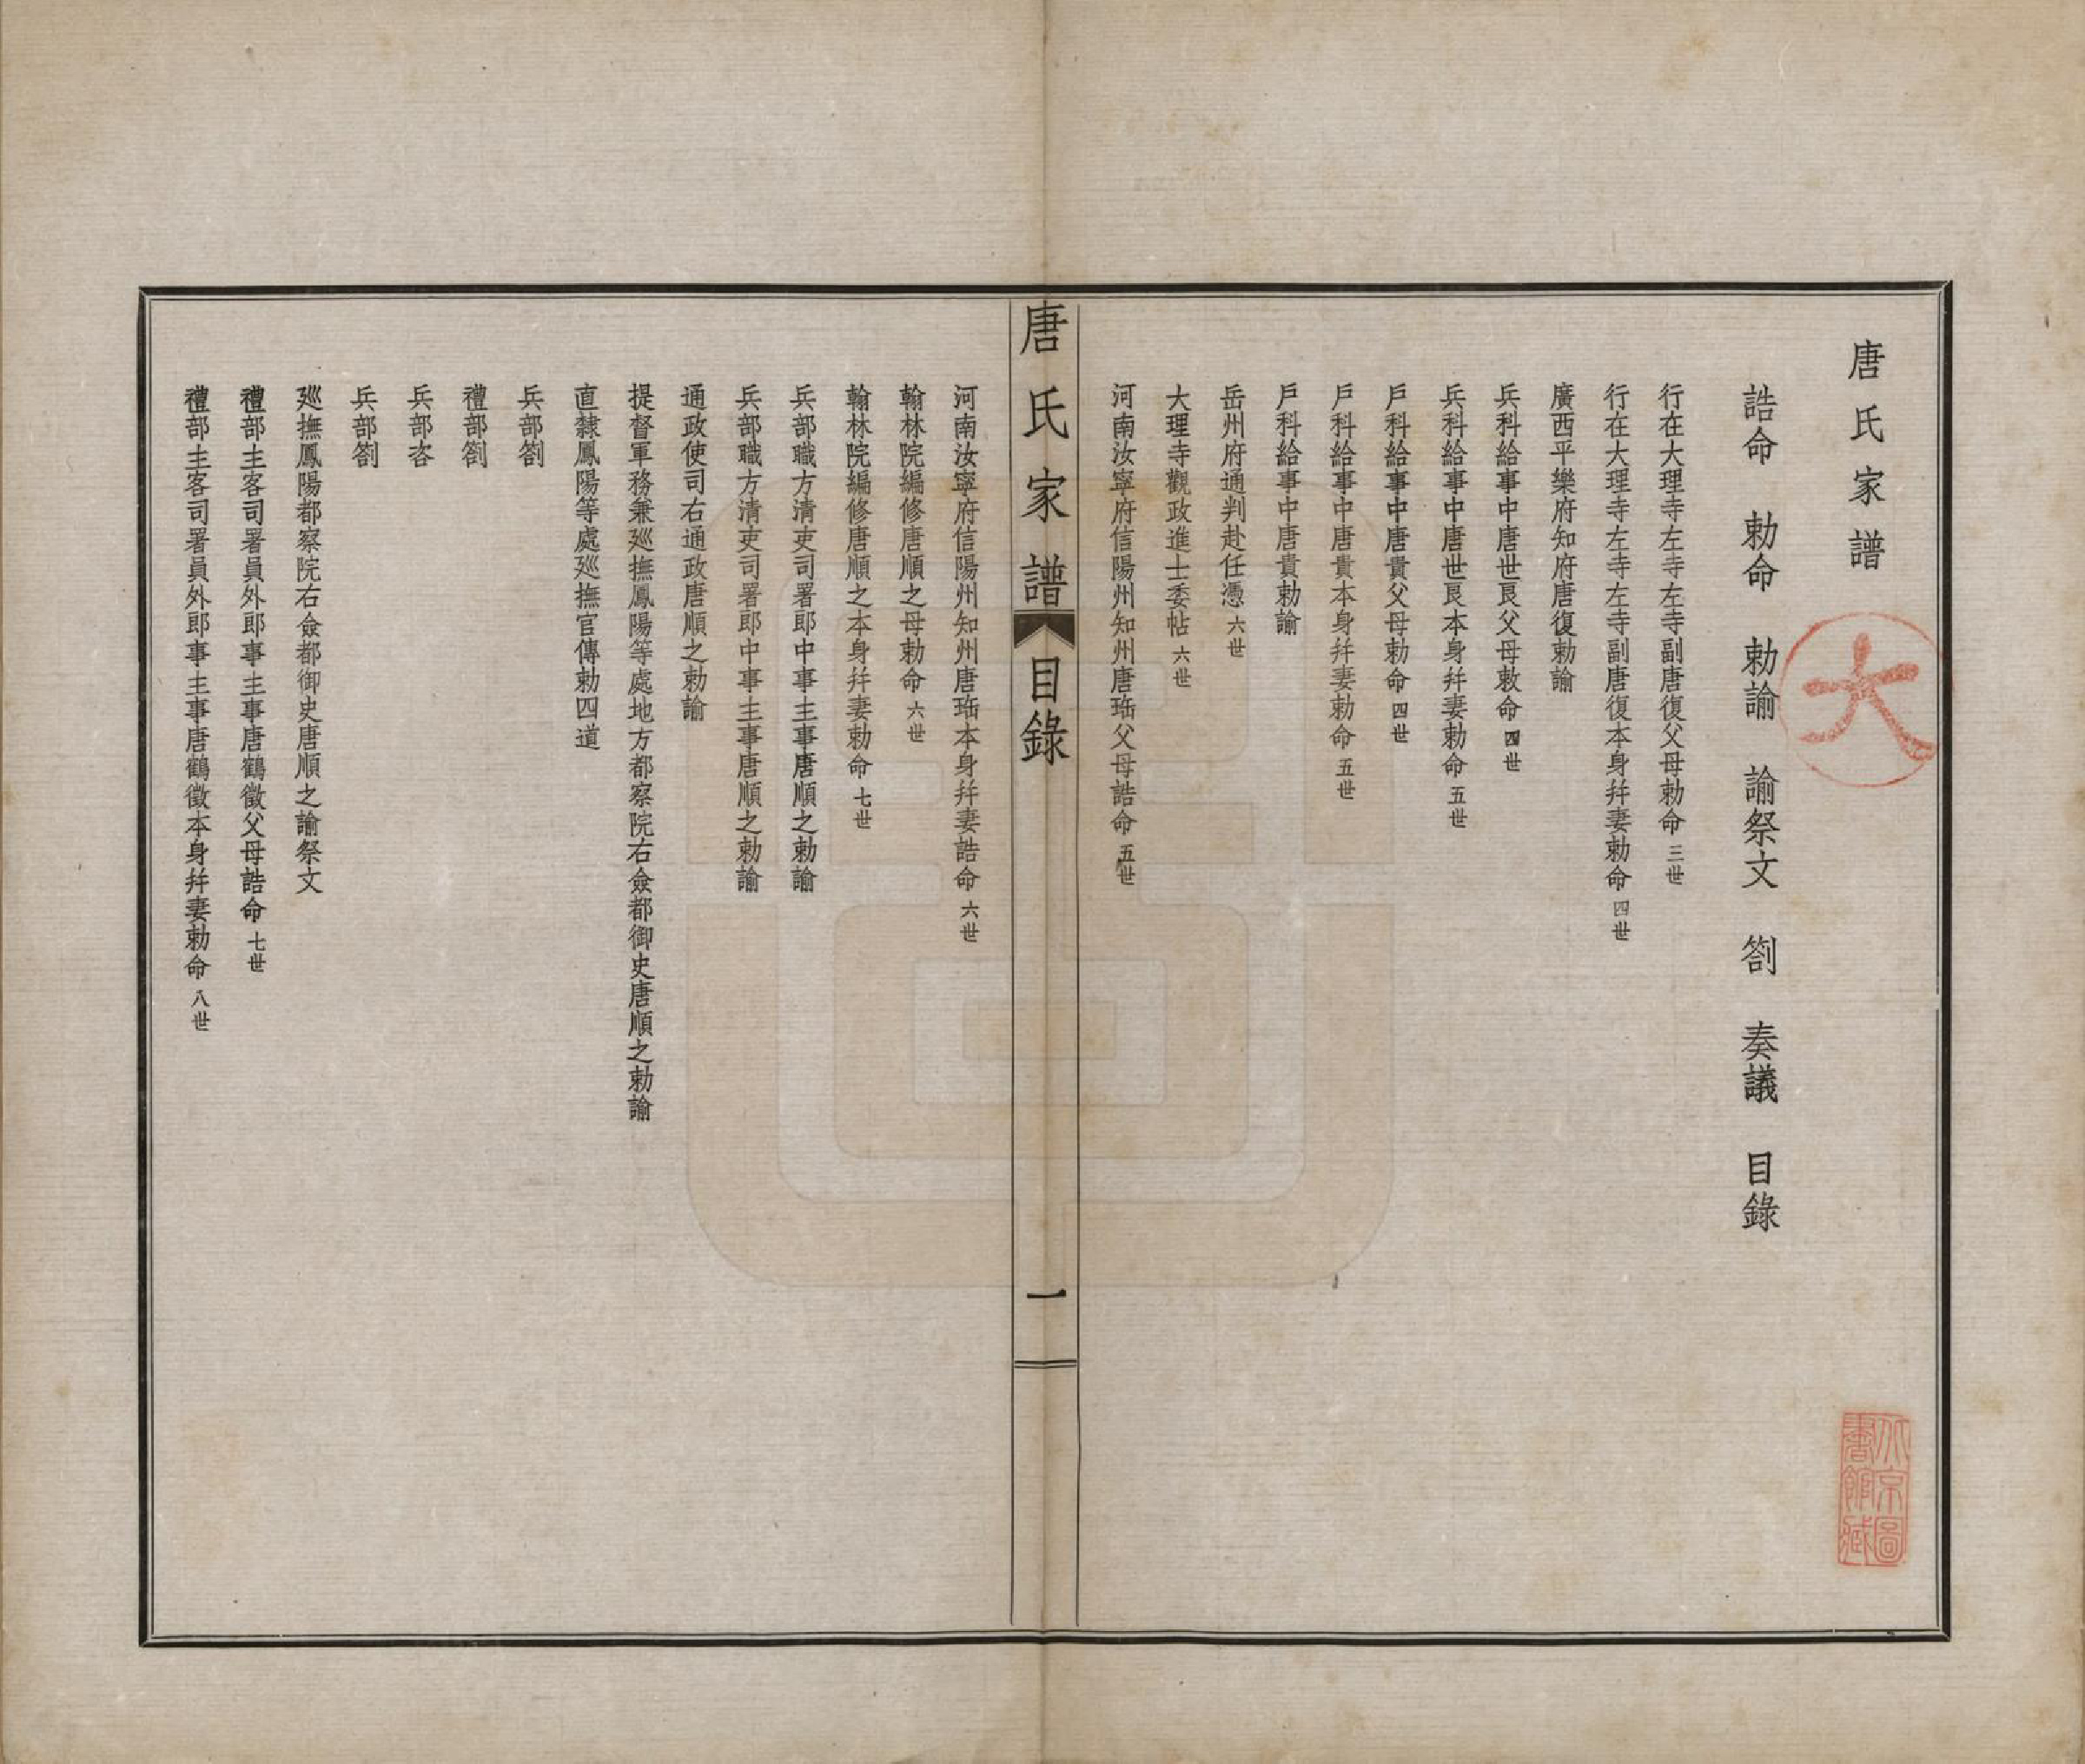 唐氏家譜
誥命　勅命　勅諭　諭祭文　劄　奏議　目錄
行在大理寺左寺左寺副唐復父母勅命三世
行在大理寺左寺左寺副唐復本身幷妻勅命四世
廣西平樂府知府唐復勅諭
兵科給事中唐世良父母敕命四世
兵科給事中唐世良本身幷妻勅命五世
戶科給事中唐貴父母勅命四世
戶科給事中唐貴本身幷妻勅命五世
戶科給事中唐貴勅諭
岳州府通判赴任憑六世
大理寺觀政進士委帖六世
河南汝寧府信陽州知州唐珤父母誥命五世
唐氏家譜
目錄
一
河南汝寧府信陽州知州唐珤本身幷妻誥命六世
翰林院編修唐順之母勅命六世
翰林院編修唐順之本身幷妻勅命七世
兵部職方清吏司署郎中事主事唐順之勅諭
兵部職方清吏司署郎中事主事唐順之勅諭
通政使司右通政唐順之勅諭
提督軍務兼廵撫鳳陽等處地方都察院右僉都御史唐順之勅諭
直隸鳳陽等處廵撫官傳勅四道
兵部劄
禮部劄
兵部咨
兵部劄
廵撫鳳陽都察院右僉都御史唐順之諭祭文
禮部主客司署員外郎事主事唐鶴徵父母誥命七世
禮部主客司署員外郎事主事唐鶴徵本身幷妻勅命八世
大
北京圖書館藏